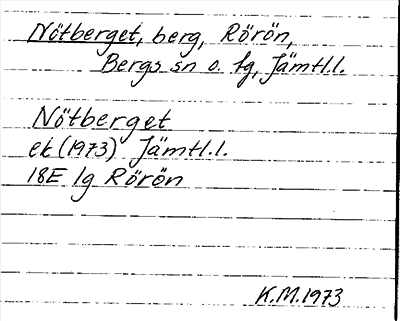 Nötberget, berg, Rörön,
Bergs sn o. tg, Jämtl.l.
Nötberget
ek (1973) Jämtl.l.
18E 1g Rörön
K.M.1973